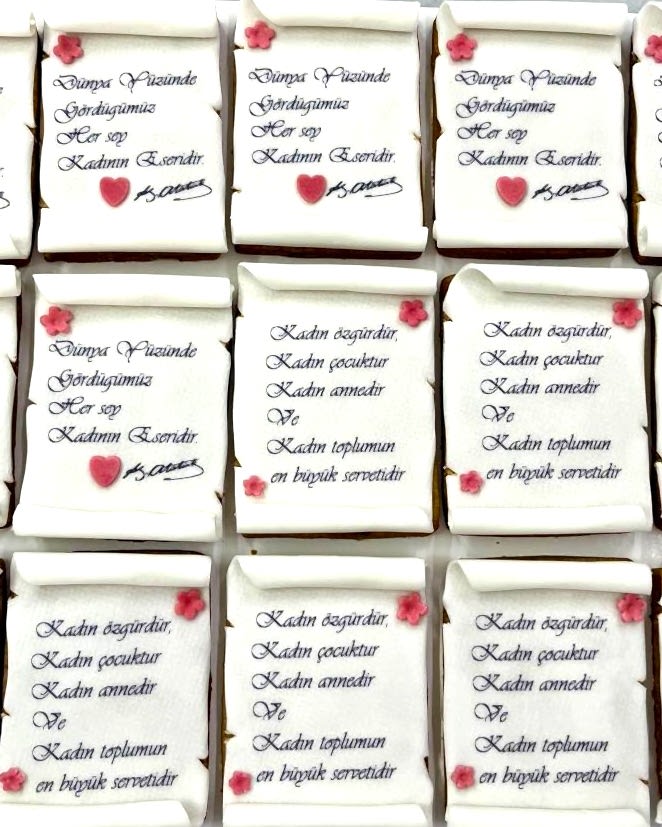 Dünya Yüzünde
Gördüğümüz
Her şey
Kadının Eseridir.
K. Atatürk
Dünya Yüzünde
Gördüğümüz
Her şey
Kadının Eseridir.
K. Atatürk
Dünya Yüzünde
Gördüğümüz
Her şey
Kadının Eseridir.
K. Atatürk
Dünya Yüzünde
Gördüğümüz
Her şey
Kadının Eseridir.
K. Atatürk
Kadın özgürdür,
Kadın çocuktur
Kadın annedir
Ve
Kadın toplumun
en büyük servetidir
Kadın özgürdür,
Kadın çocuktur
Kadın annedir
Ve
Kadın toplumun
en büyük servetidir
Kadın özgürdür,
Kadın çocuktur
Kadın annedir
Ve
Kadın toplumun
en büyük servetidir
Kadın özgürdür,
Kadın çocuktur
Kadın annedir
Ve
Kadın toplumun
en büyük servetidir
Kadın özgürdür,
Kadın çocuktur
Kadın annedir
Ve
Kadın toplumun
en büyük servetidir